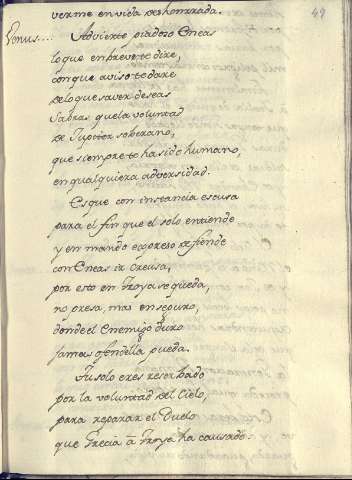 49
verme en vida deshonrrada.
Venus.... Advierte piadoso Eneas
lo que en breve te dire,
con que aviso te dare
de lo que saver deseas
Sabras que la voluntad
de Jupiter soberano,
que siempre te ha sido humano,
en qualquiera adversidad.
Es que con instancia escusa
para el fin que el solo entiende
y en mando expreso defiende
con Eneas ir Creusa,
por esto en Troya se queda,
no presa, mas en seguro,
donde el Enemigo duro
jamas ofendella pueda.
Tu solo eres reserbado
por la voluntad del Cielo,
para reparar el Duelo
que Grecia à Troya ha causado.